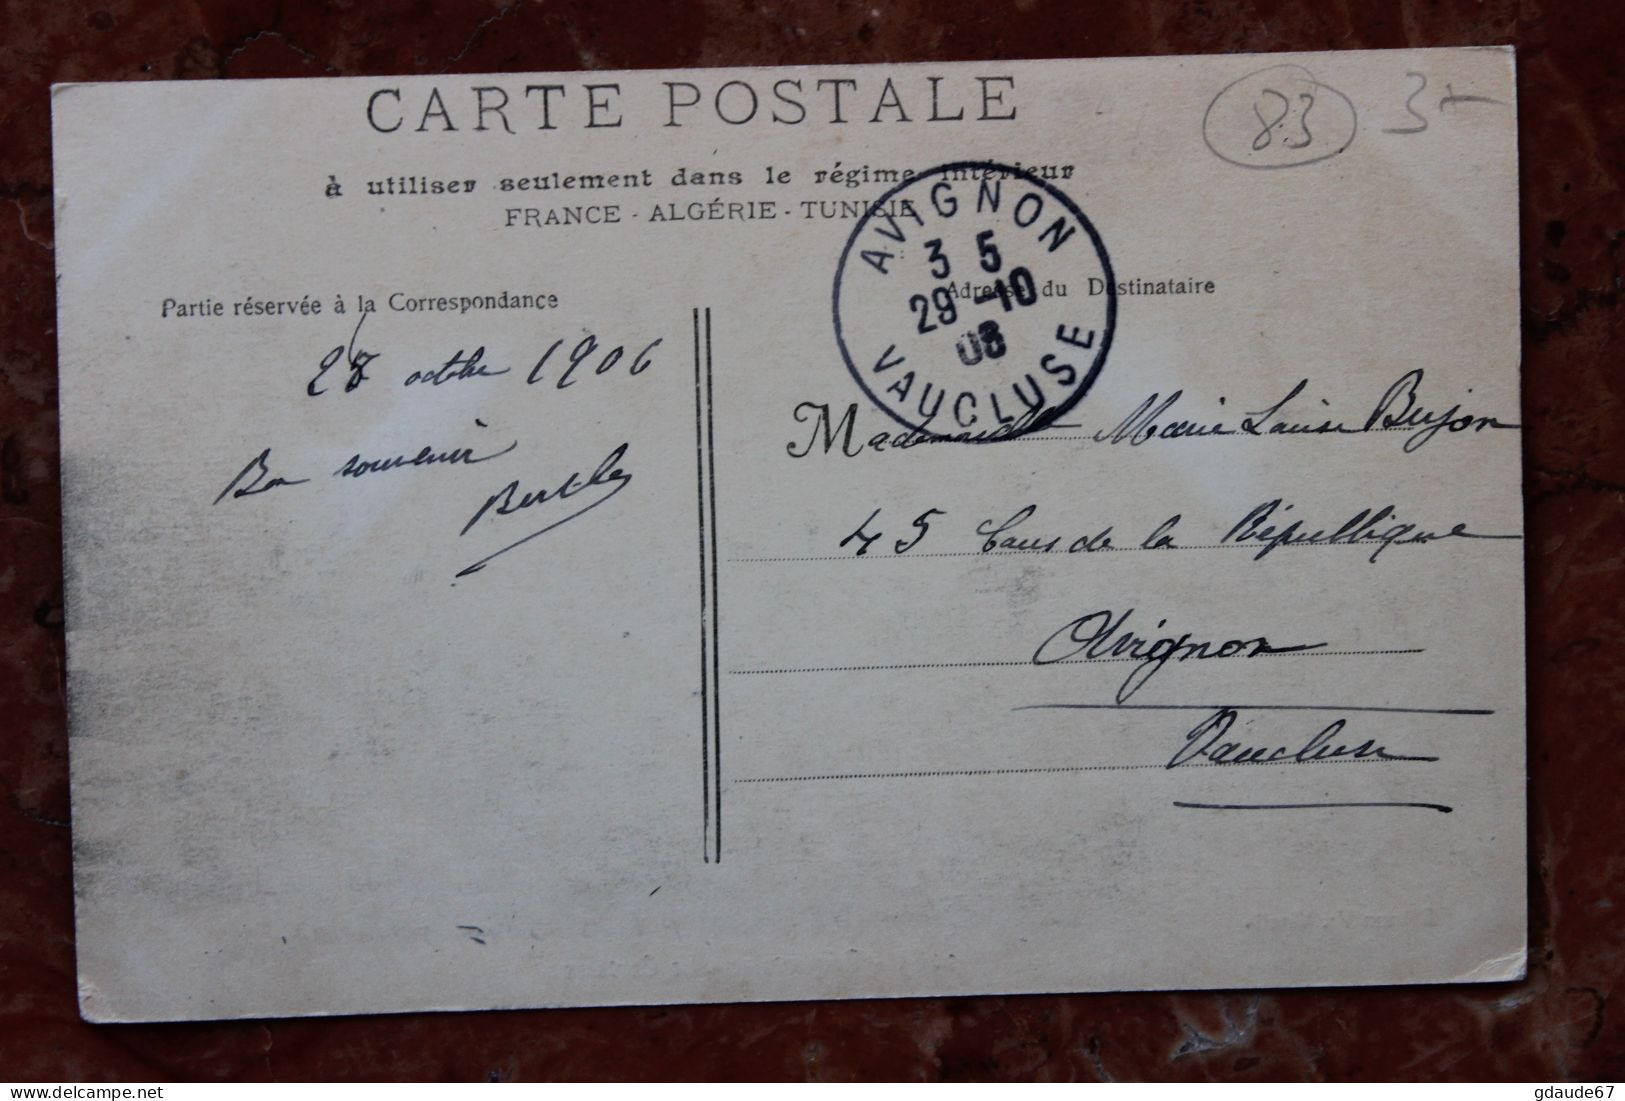 CARTE POSTALE
83
3-
à utiliser seulement dans le régime intérieur
FRANCE - ALGÉRIE - TUNISIE
AVIGNON
3 5
29-10
VAUCLUSE
Partie réservée à la Correspondance
28 octbre 1906
Bon souvenir
Berthe
Adresse du Destinataire
Mademoiselle Marie Louise Bujon
45 Cours de la République
Avignon
Vaucluse
delcampe.net
gdaude67